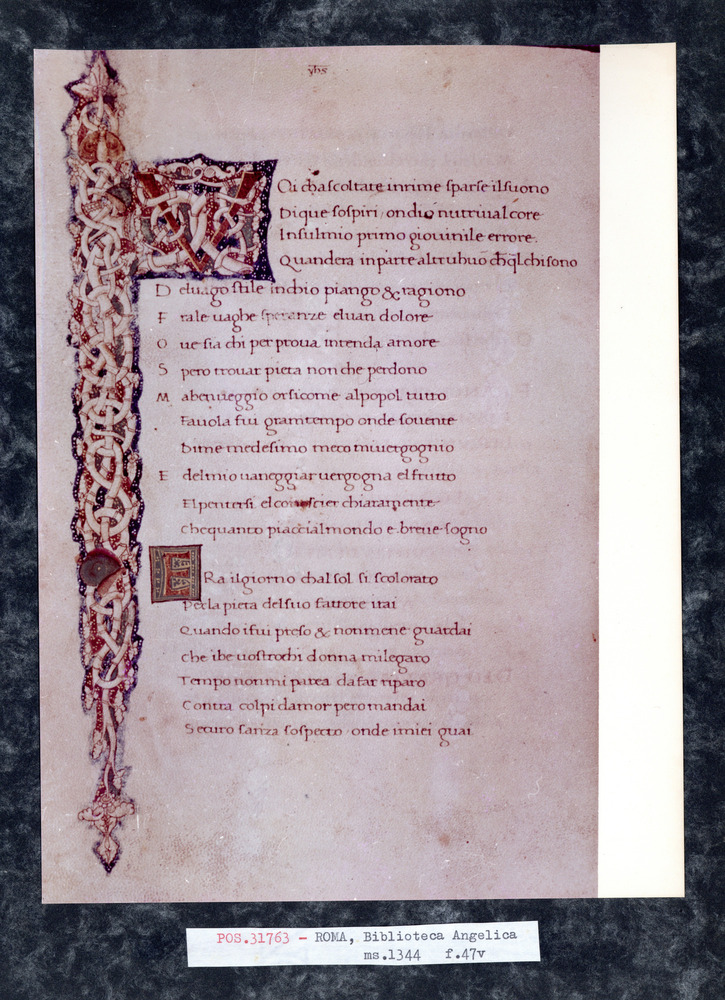 yhs
VOi chascoltate inrime sparse ilsuono
Dique sospiri ondio nutriual core
Insulmio primo giouinile errore.
Quandera inparte altruhuō ch̄q̄l chisono
D eluago stile inchio piango & ragiono
F rale uaghe speranze eluan dolore
O ue sia chi per proua intenda amore
S pero trouar pieta non che perdono
M abenueggio orsicome alpopol tutto
Fauola fui grantempo onde souente
Dime medesimo meco miuergognio
E delmio uaneggiar uergogna elfrutto
Elpentersi elconoscier chiaramente
Chequanto piaccialmondo e breue sogno
ERa ilgiorno chalsol si scolorato
Perla pieta delsuo fattore irai
Quando ifui preso & nonmene guardai
Che ibe uostrochi donna milegaro
Tempo nonmi parea dafar riparo
Contra colpi damor pero mandai
Securo sanza sospecto onde imiei guai
POS.31763 – ROMA, Biblioteca Angelica
ms.1344 f.47v